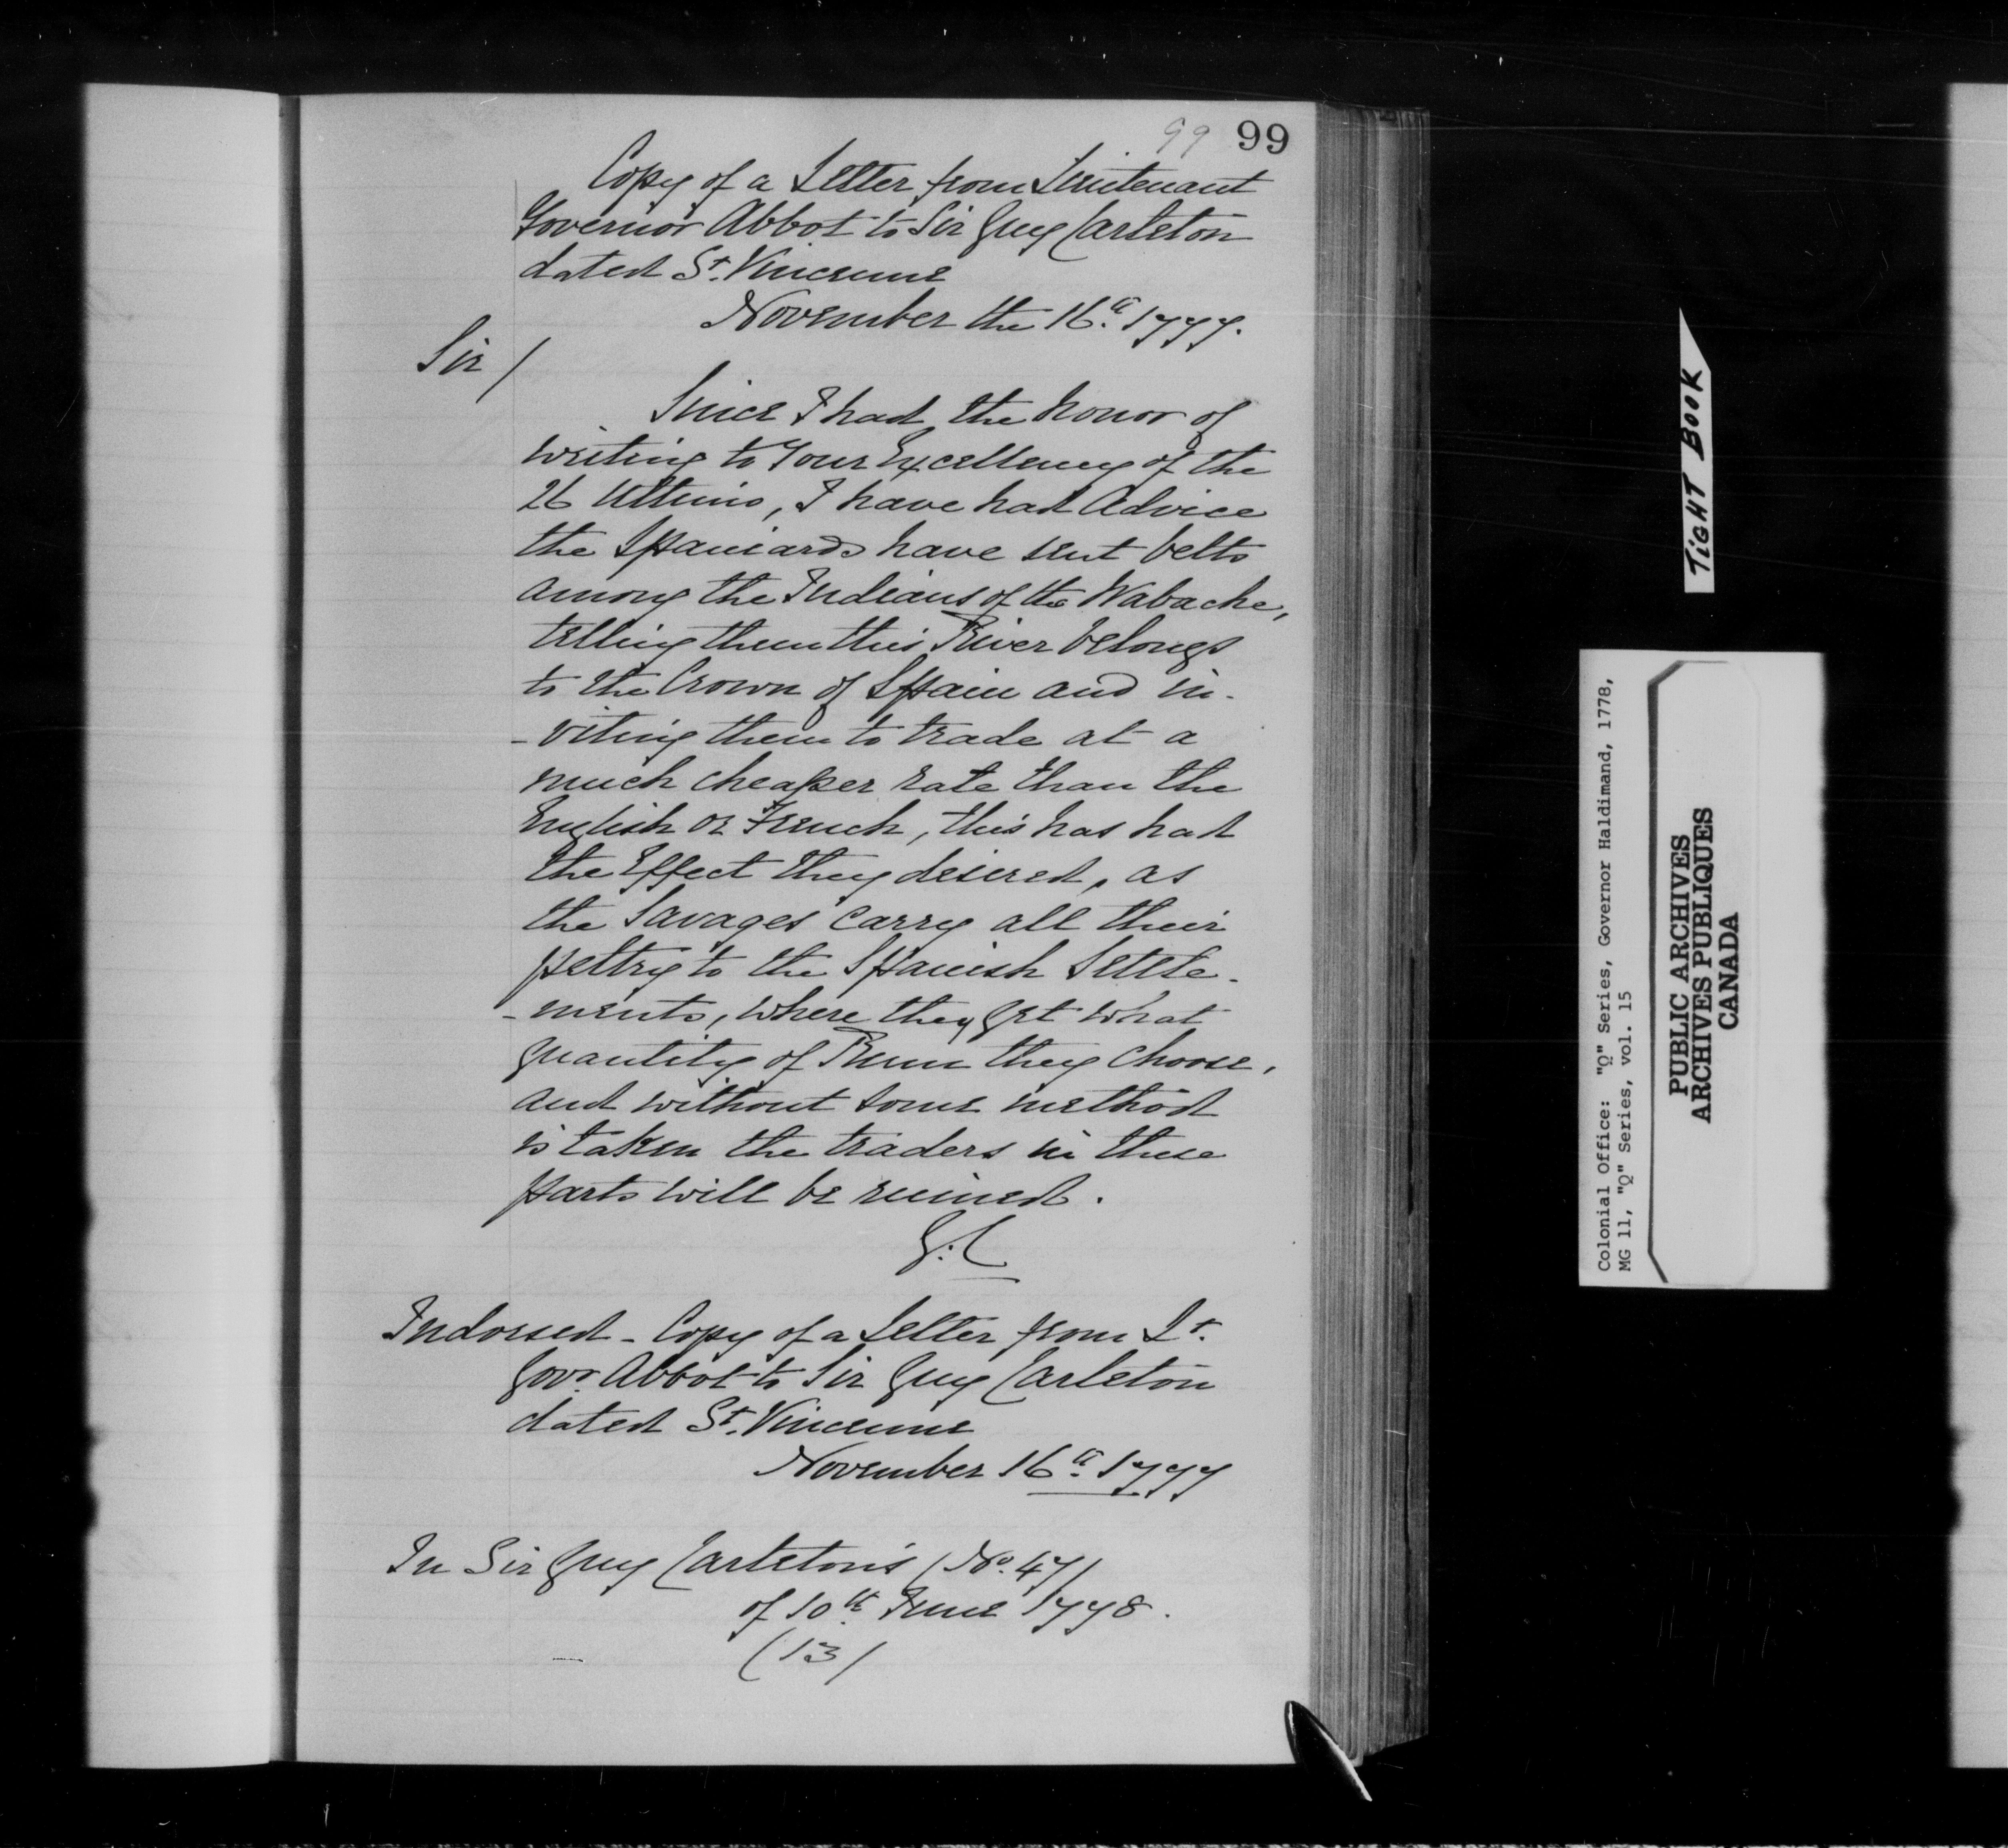 99 99
Copy of a Letter from Lieutenant
Governor Abbot to Sir Guy Carleton
dated St. Vincenne
November the 16th. 1777.
Sir /
Since I had the honor of
writing to Your Excellency of the
26 Ultimo, I have had Advice
the Spaniards have sent belts
among the Indians of the Wabache,
telling them this River belongs
to the Crown of Spain and in-
-viting them to trade at a
much cheaper rate than the
English or French, this has had
the Effect they desired, as
the Savages carry all their
peltry to the Spanish Settle-
-ments, where they get what
quantity of Rum they choose,
and without some method
is taken the traders in these
parts will be ruined.
G. C
Indorsed - Copy of a Letter from Lt.
Govr. Abbot to Sir Guy Carleton
dated St. Vincenne
November 16th. 1777
In Sir Guy Carleton's (No. 47)
of 10th. June 1778.
(13)
TiGHT BOOK
Colonial Office: "Q" Series, Governor Haldimand, 1778,
MG 11, "Q" Series, vol. 15
PUBLIC ARCHIVES
ARCHIVES PUBLIQUES
CANADA